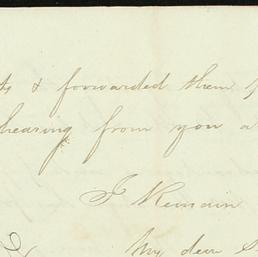 & forwarded them
hearing from you a
I Remain
My dear